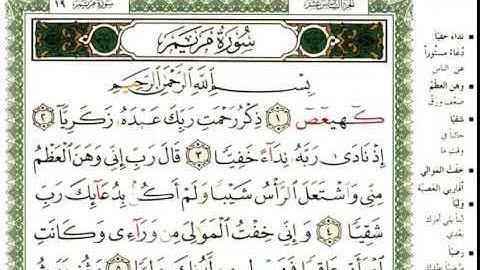 الجزء السادس عشر
سورة مريم ١٩
سُورَةُ مَرْيَمَ
بِسْمِ ٱللَّهِ ٱلرَّحْمَٰنِ ٱلرَّحِيمِ
كٓهيعٓصٓ ١ ذِكْرُ رَحْمَتِ رَبِّكَ عَبْدَهُۥ زَكَرِيَّآ ٢
إِذْ نَادَىٰ رَبَّهُۥ نِدَآءً خَفِيًّا ٣ قَالَ رَبِّ إِنِّى وَهَنَ ٱلْعَظْمُ
مِنِّى وَٱشْتَعَلَ ٱلرَّأْسُ شَيْبًا وَلَمْ أَكُنۢ بِدُعَآئِكَ رَبِّ
شَقِيًّا ٤ وَإِنِّى خِفْتُ ٱلْمَوَٰلِىَ مِن وَرَآءِى وَكَانَتِ
٥
نداءً خفيًّا
دعاءً مستوراً
عن الناس
وهن العظم
ضعف ورقّ
شقيًّا
خائباً في
وقت ما
خفت الموالي
أقاربي العصبة
وليًّا
ابناً يلي أمرك
بعدي
رضيًّا